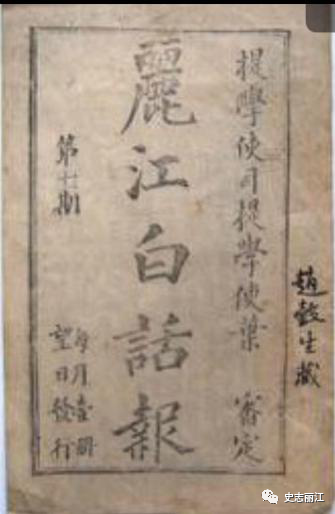 提學使司提學使葉 審定
麗江白話報
第期
每月壹冊
望日發行
趙生藏
史志丽江